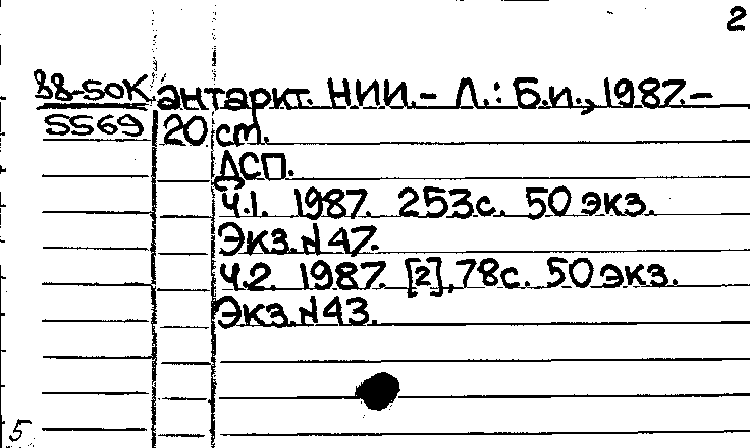 2
88-50К антаркт. НИИ.- Л.: Б.и., 1987.-
5569 20 ст.
ДСП.
Ч.1. 1987. 253с. 50 экз.
Экз.N47.
Ч.2. 1987. [2],78с. 50 экз.
Экз.N43.
5